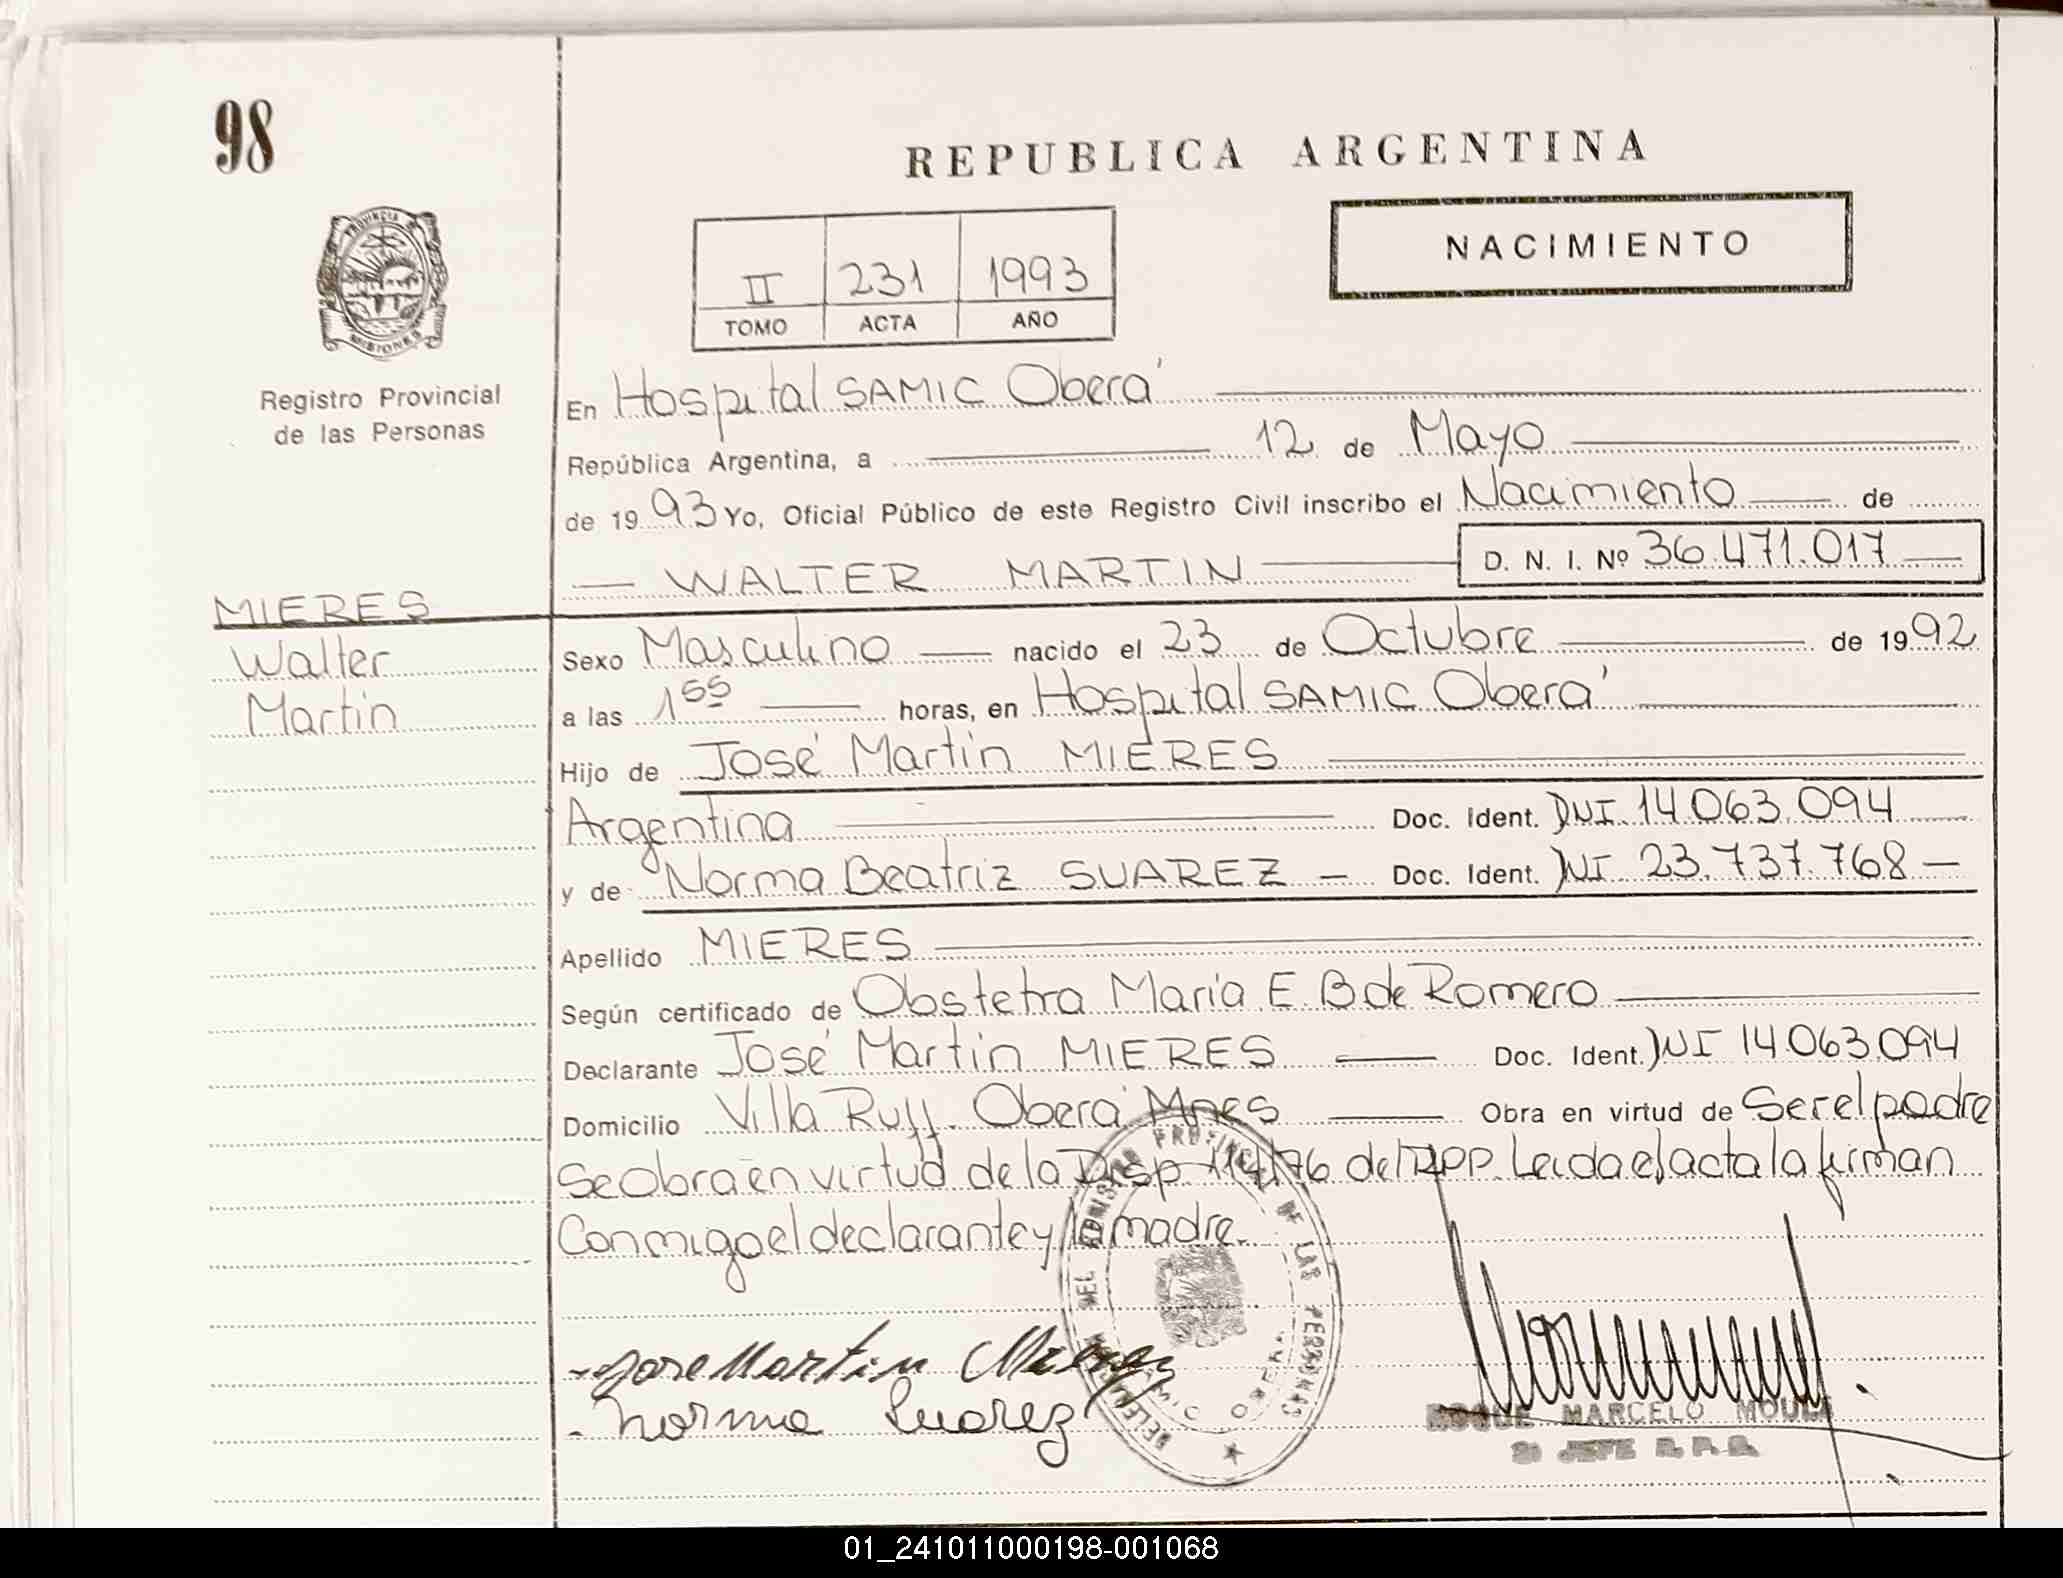 98
REPUBLICA ARGENTINA
PROVINCIA
MISIONES
Registro Provincial
de las Personas
II 231 1993
TOMO ACTA AÑO
NACIMIENTO
En Hospital SAMIC Oberá
República Argentina, a 12 de Mayo
de 1993 Yo, Oficial Público de este Registro Civil inscribo el Nacimiento de
WALTER MARTIN D. N. I. Nº 36.471.017
MIERES
Walter
Martin
Sexo Masculino nacido el 23 de Octubre de 1992
a las 1 55 horas, en Hospital SAMIC Oberá
Hijo de José Martin MIERES
Argentina Doc. Ident. DNI 14.063.094
y de Norma Beatriz SUAREZ Doc. Ident. DNI 23.737.768
Apellido MIERES
Según certificado de Obstetra Maria E. B de Romero
Declarante José Martin MIERES Doc. Ident. DNI 14.063.094
Domicilio Villa Ruff. Oberá Mnes Obra en virtud de Ser el padre
Se Obra en virtud de la Disp. 114/76 del RPP. Leida el acta la firman
Conmigo el declarante y la madre.
Jose Martin Mieres
Norma Suarez
PROVINCIAL DE LAS PERSONAS
SAMIC OBERA
ROQUE MARCELO
JEFE
01_241011000198-001068